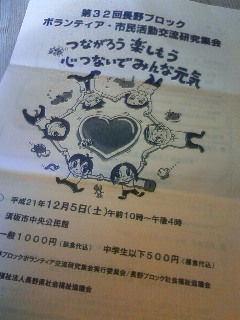 第32回長野ブロック
ボランティア・市民活動交流研究集会
つながろう 楽しもう
心つないでみんな元気
平成21年12月5日(土)午前10時~午後4時
須坂市中央公民館
一般1000円(昼食代込) 中学生以下500円(昼食代込)
ブロックボランティア交流研究集会実行委員会/長野ブロック社会福祉協議会
福祉法人長野県社会福祉協議会